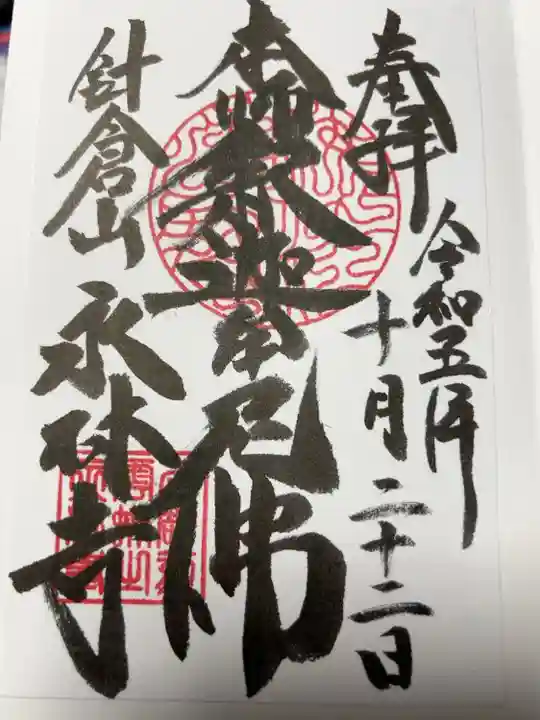 奉拝
令和五年
十月二十二日
本師釈迦牟尼佛
針倉山
永林寺